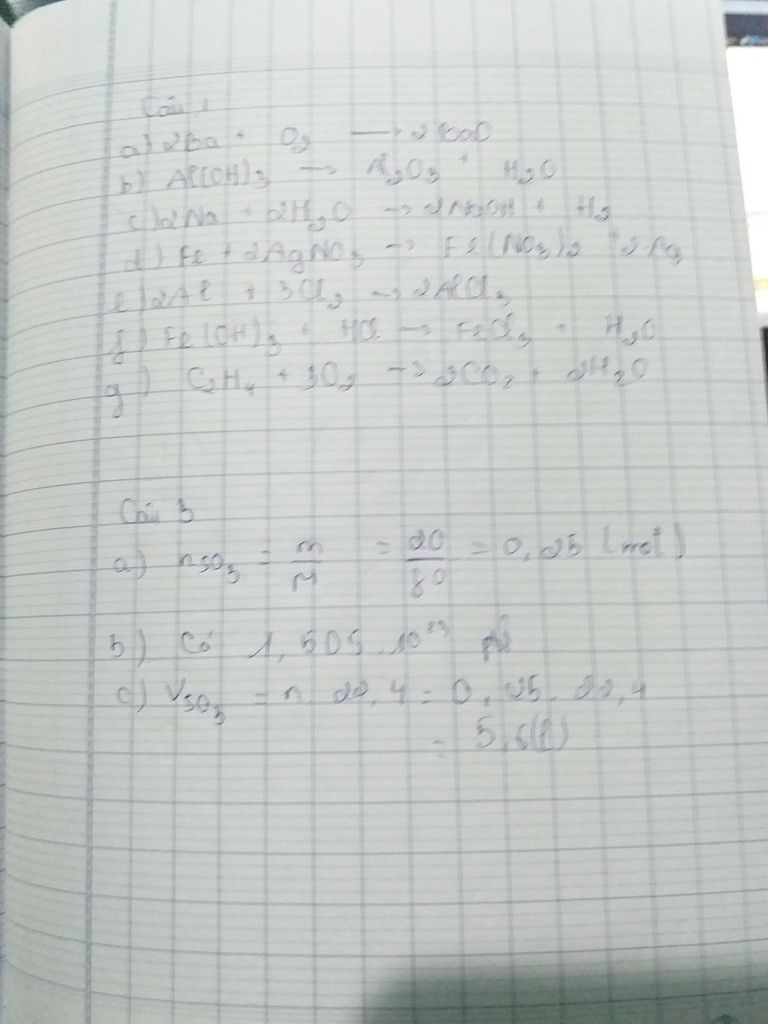 Câu 1
a) 2Ba + O₂ → 2BaO
b) Al(OH)₃ → Al₂O₃ + H₂O
c) 2Na + 2H₂O → 2NaOH + H₂
d) Fe + 2AgNO₃ → Fe(NO₃)₂ + 2Ag
e) 2Al + 3Cl₂ → 2AlCl₃
f) Fe(OH)₃ + HCl → FeCl₃ + H₂O
g) C₂H₄ + 3O₂ → 2CO₂ + 2H₂O
Câu 3
a) nSO₃ = m/M = 20/80 = 0,25 (mol)
b) Có 1,505.10²³ ptử
c) VSO₃ = n. 22,4 = 0,25. 22,4
= 5,6(l)